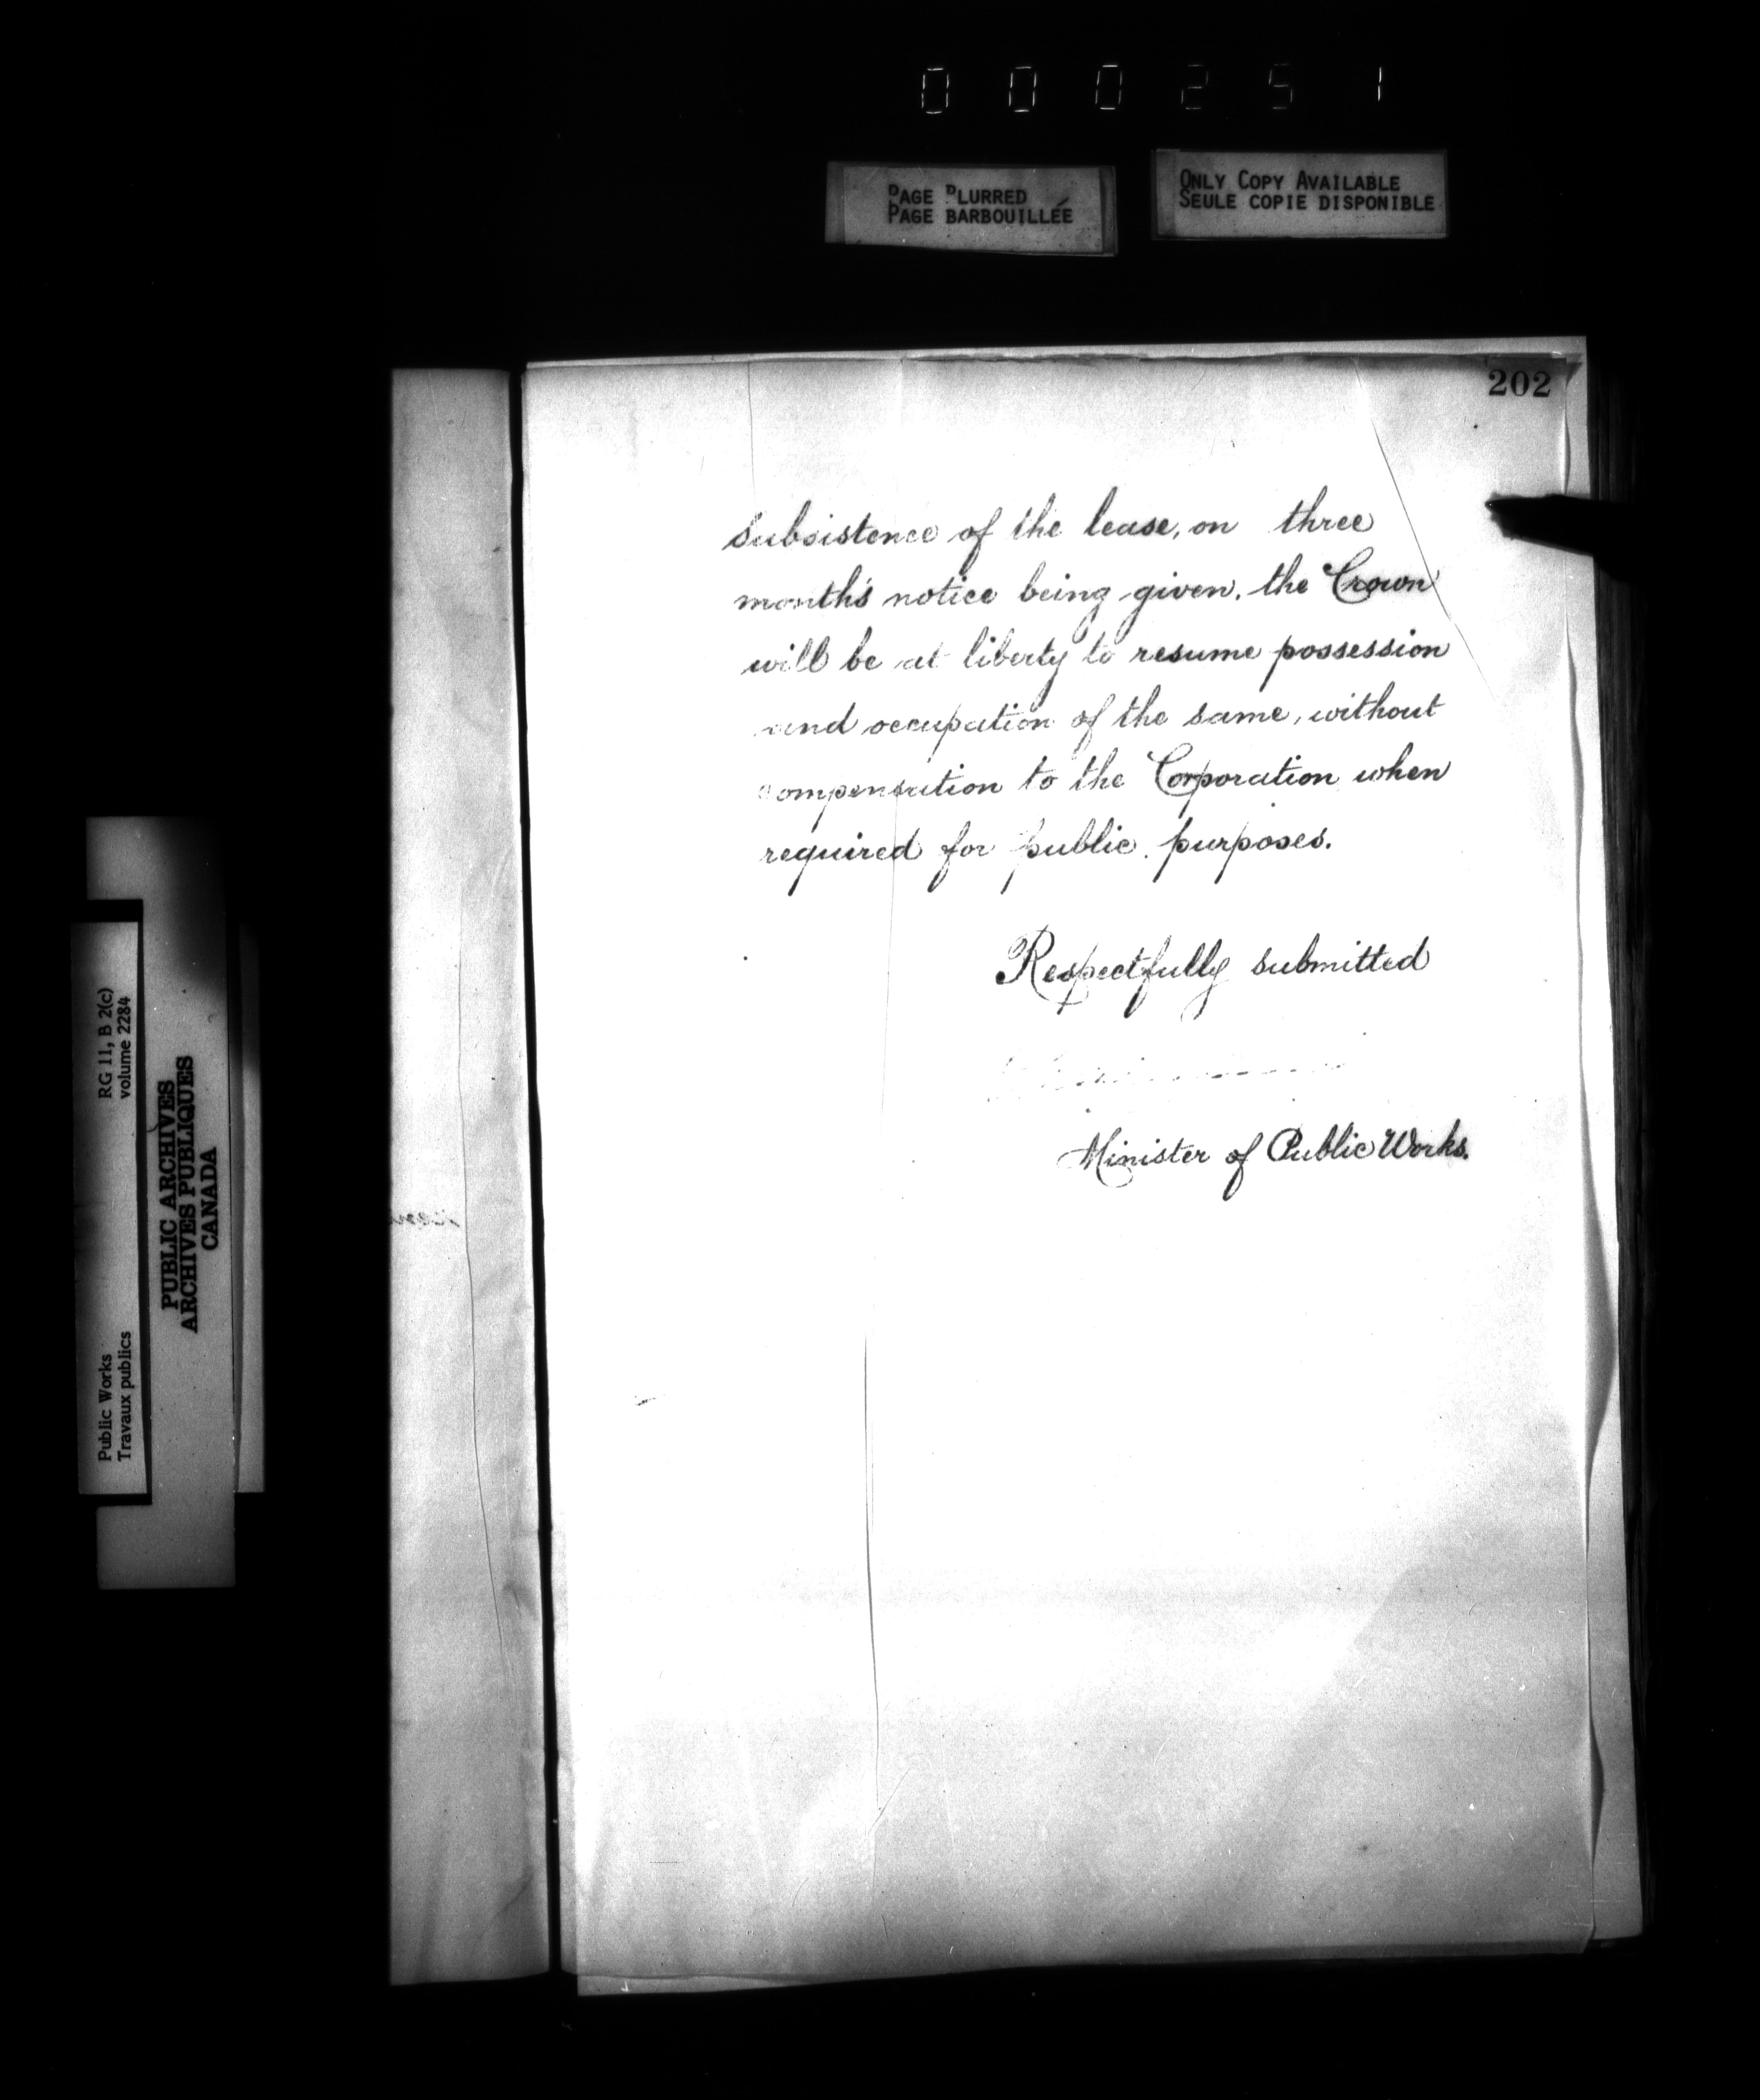 000251
PAGE BLURRED
PAGE BARBOUILLÉE
ONLY COPY AVAILABLE
SEULE COPIE DISPONIBLE
202
subsistence of the lease, on three
month's notice being given, the Crown
will be at liberty to resume possession
and occupation of the same, without
compensation to the Corporation when
required for public purposes.
Respectfully submitted
Minister of Public Works.
RG 11, B 2(c)
volume 2284
Public Works
Travaux publics
PUBLIC ARCHIVES
ARCHIVES PUBLIQUES
CANADA